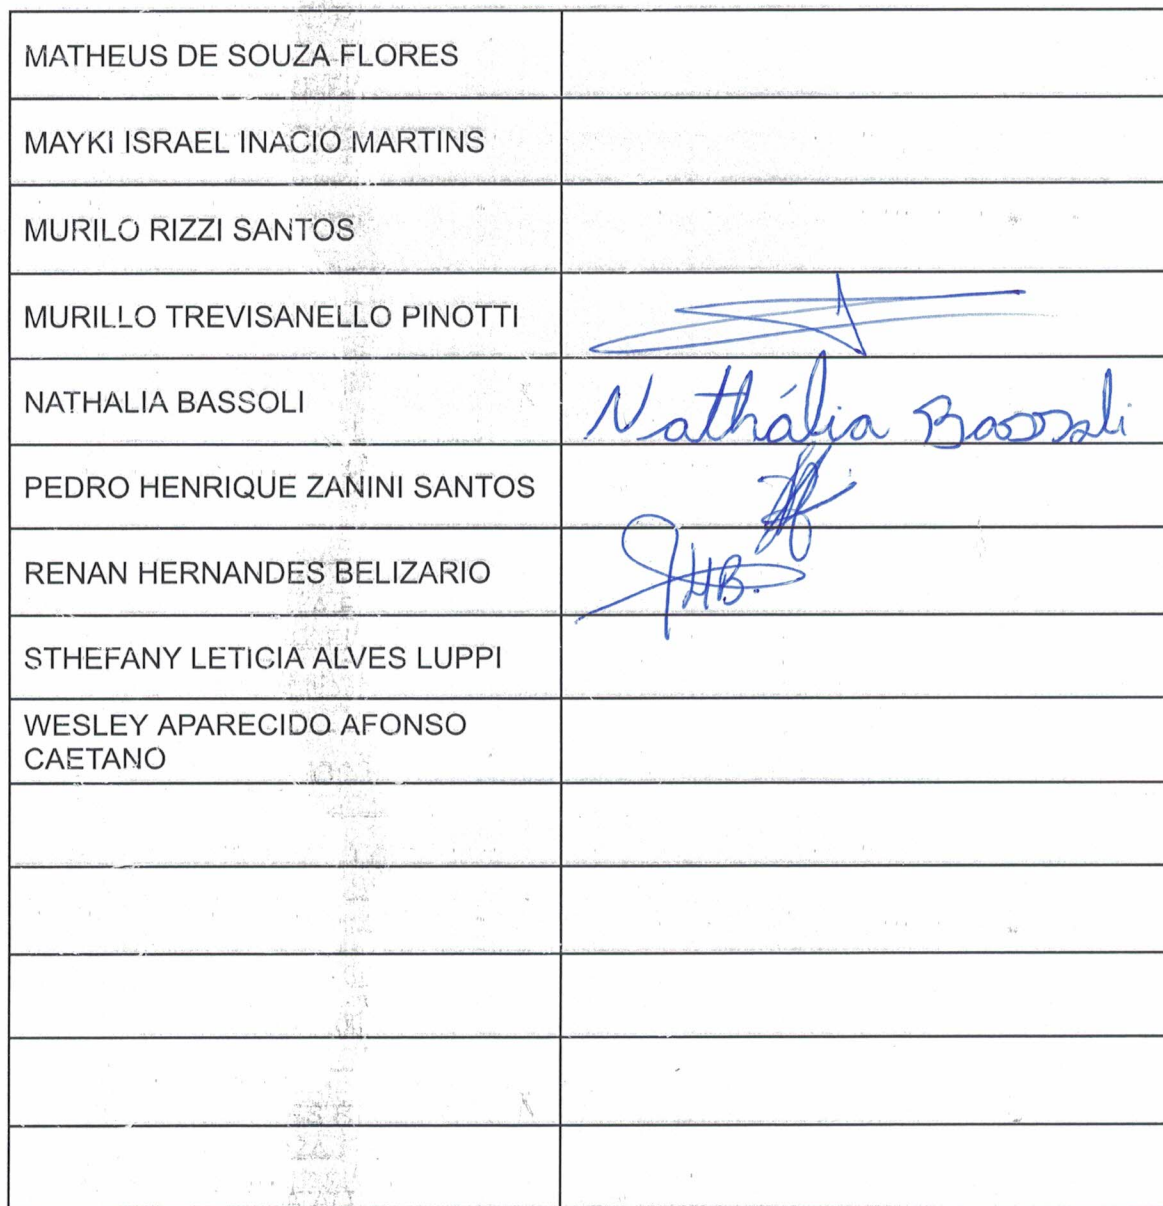 MATHEUS DE SOUZA FLORES
MAYKI ISRAEL INACIO MARTINS
MURILO RIZZI SANTOS
MURILLO TREVISANELLO PINOTTI
NATHALIA BASSOLI
Nathália Bassoli
PEDRO HENRIQUE ZANINI SANTOS
RENAN HERNANDES BELIZARIO
HB.
STHEFANY LETICIA ALVES LUPPI
WESLEY APARECIDO AFONSO
CAETANO